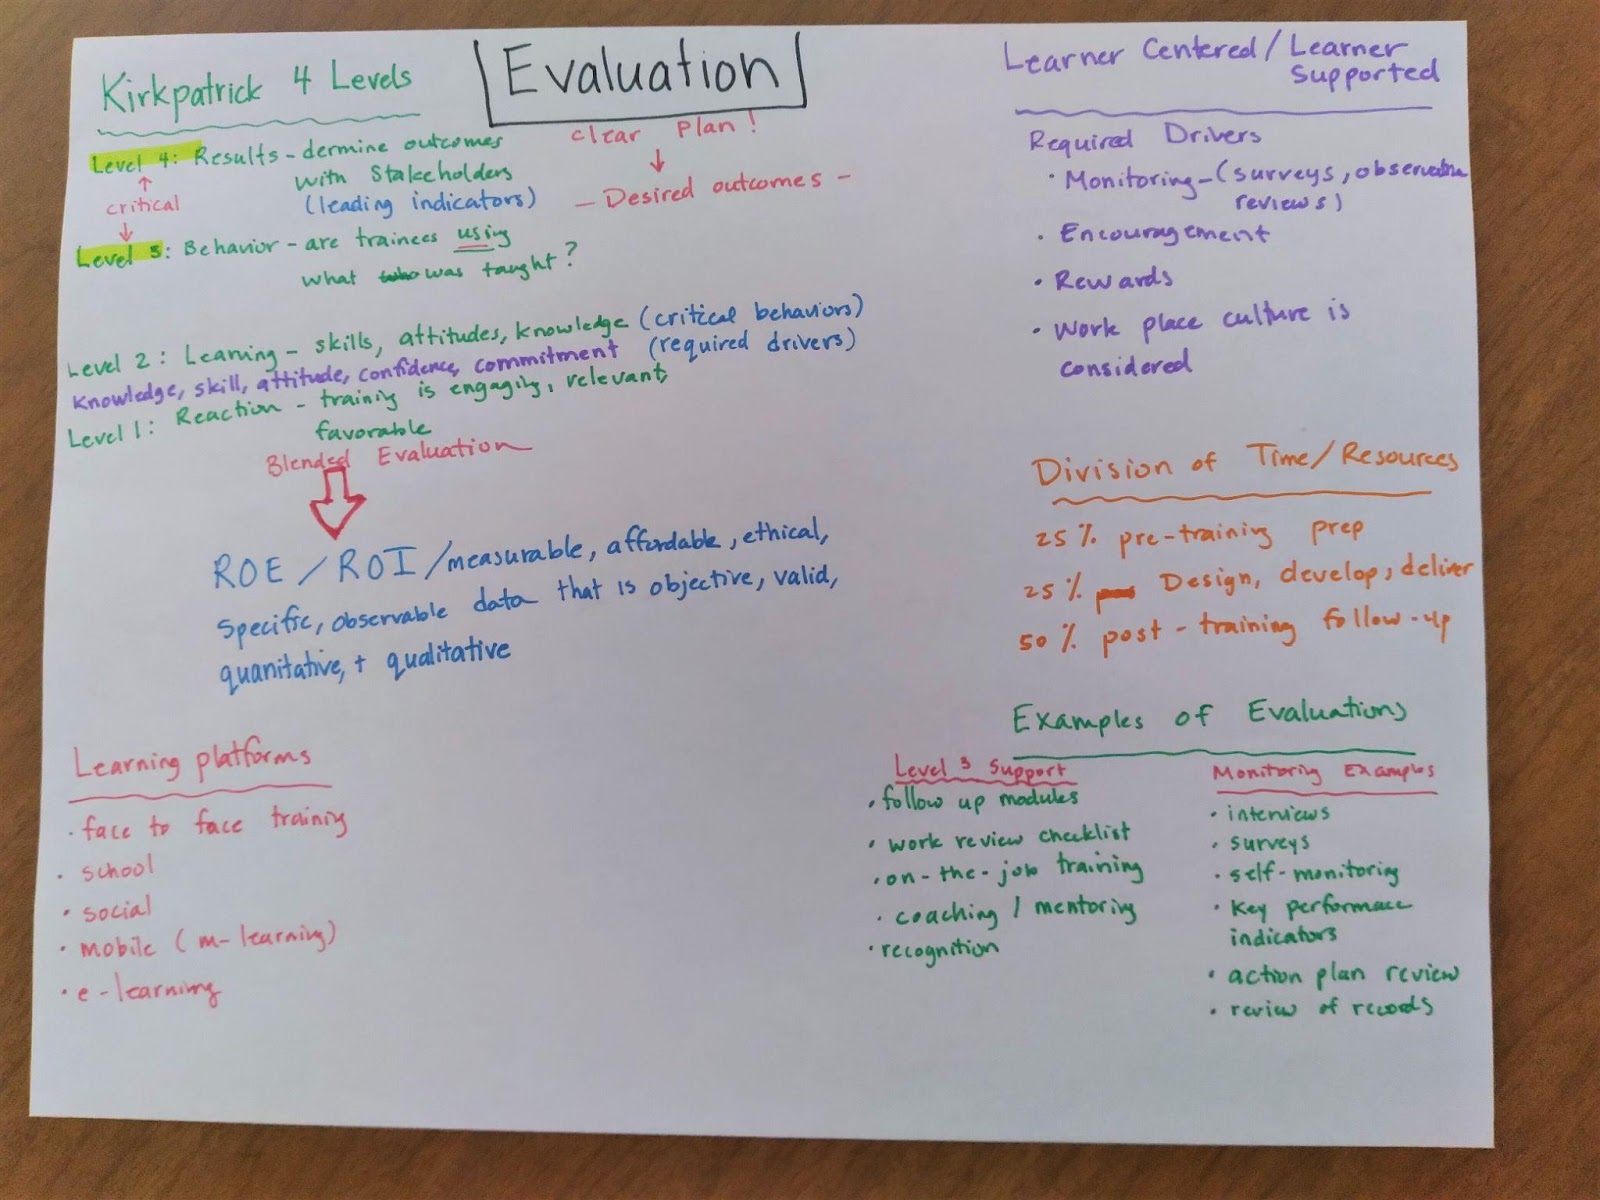 Evaluation
clear Plan!
↓
- Desired outcomes -
Kirkpatrick 4 Levels
Level 4: Results - dermine outcomes
with Stakeholders
(leading indicators)
↑
critical
↓
Level 3: Behavior - are trainees using
what was taught?
Level 2: Learning - skills, attitudes, knowledge (critical behaviors)
knowledge, skill, attitude, confidence, commitment (required drivers)
Level 1: Reaction - training is engaging, relevant,
favorable
Blended Evaluation
ROE / ROI / measurable, affordable, ethical,
specific, observable data that is objective, valid,
quanitative, + qualitative
Learning platforms
· face to face training
· school
· social
· mobile (m-learning)
· e-learning
Learner Centered / Learner
Supported
Required Drivers
· Monitoring - (surveys, observation
reviews)
· Encouragement
· Rewards
· Work place culture is
considered
Division of Time/Resources
25% pre-training prep
25% Design, develop, deliver
50% post-training follow-up
Examples of Evaluations
Level 3 Support
· follow up modules
· work review checklist
· on-the-job training
· coaching / mentoring
· recognition
Monitoring Examples
· interviews
· surveys
· self-monitoring
· Key performace
indicators
· action plan review
· review of records